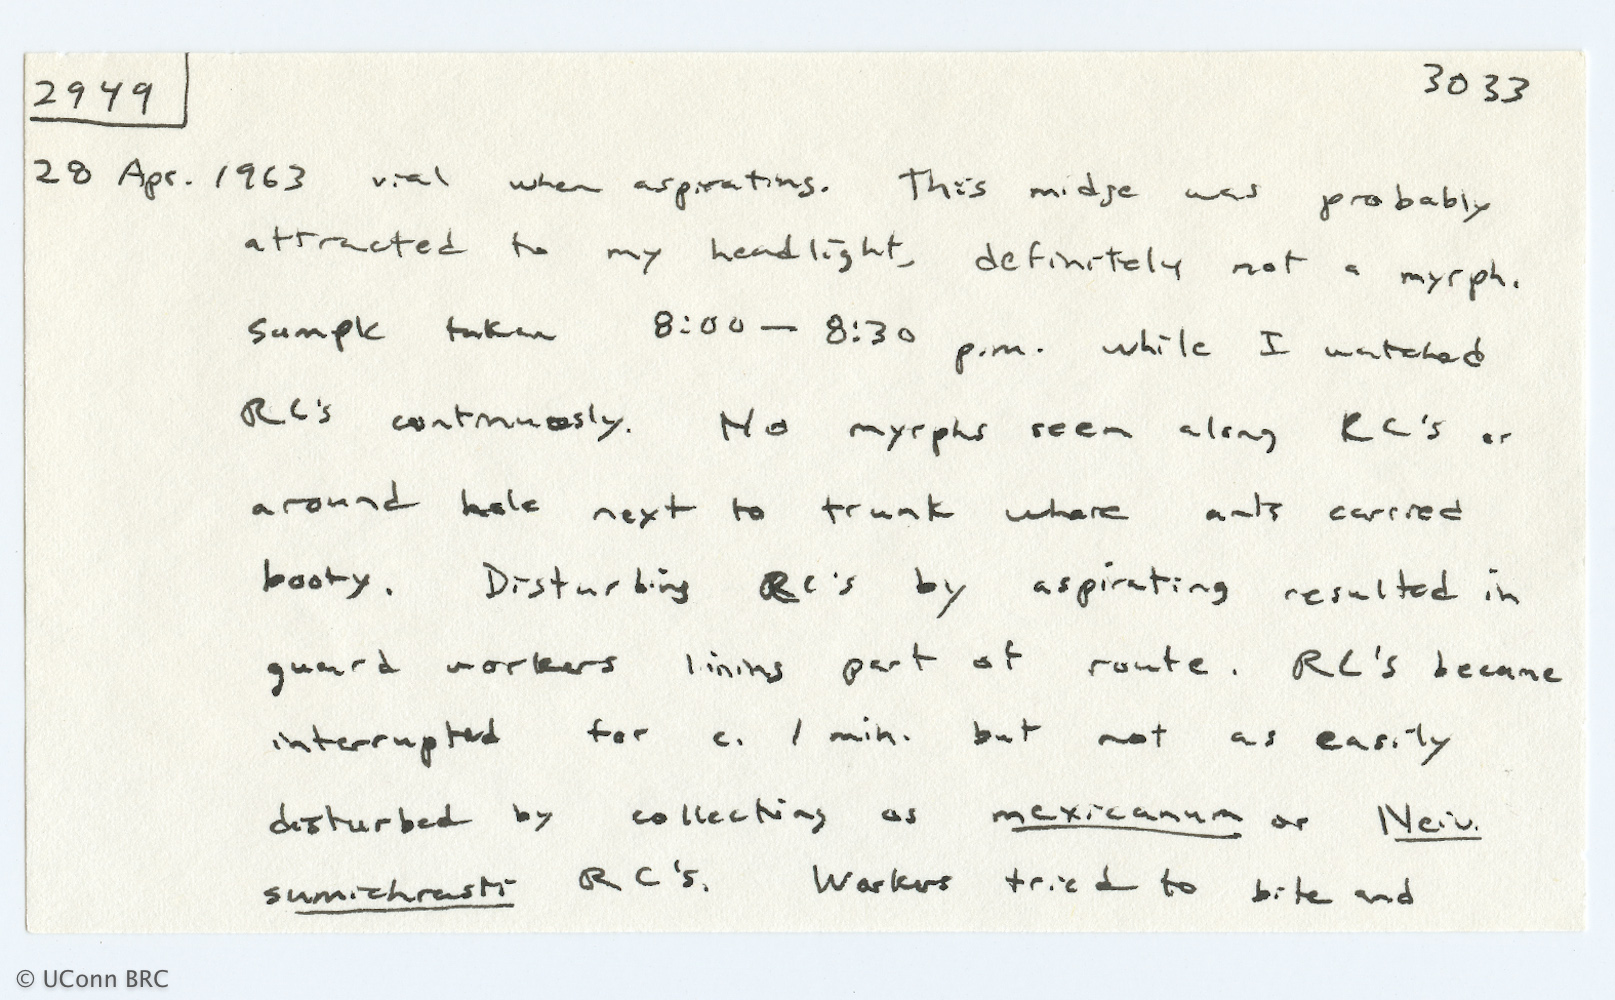 2949
3033
28 Apr. 1963 vial when aspirating. This midge was probably
attracted to my headlight, definitely not a myrph.
Sample taken 8:00 — 8:30 p.m. while I watched
RC's continuously. No myrphs seen along RC's or
around hole next to trunk where ants carried
booty. Disturbing RC's by aspirating resulted in
guard workers lining part of route. RC's became
interrupted for c. 1 min. but not as easily
disturbed by collecting as mexicanum or Neiv.
sumichrasti RC's. Workers tried to bite and
© UConn BRC